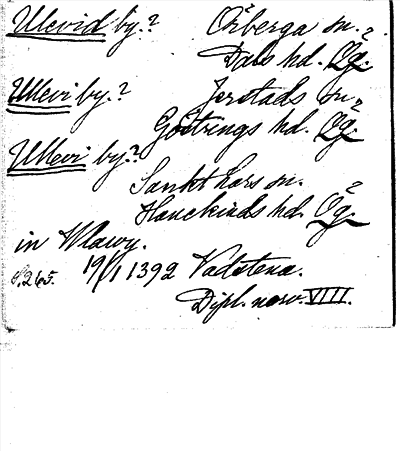 Ullevid by.? Örberga sn.?
Dals hd. Ög.
Ullevi by.? Jerstads sn.?
Göstrings hd. Ög.
Ullevi by.?
Sankt Lars sn.?
Hanekinds hd. Ög.
in Wlawy.
s. 265. 19/1 1392 Vadstena.
Dipl. norv. VIII.